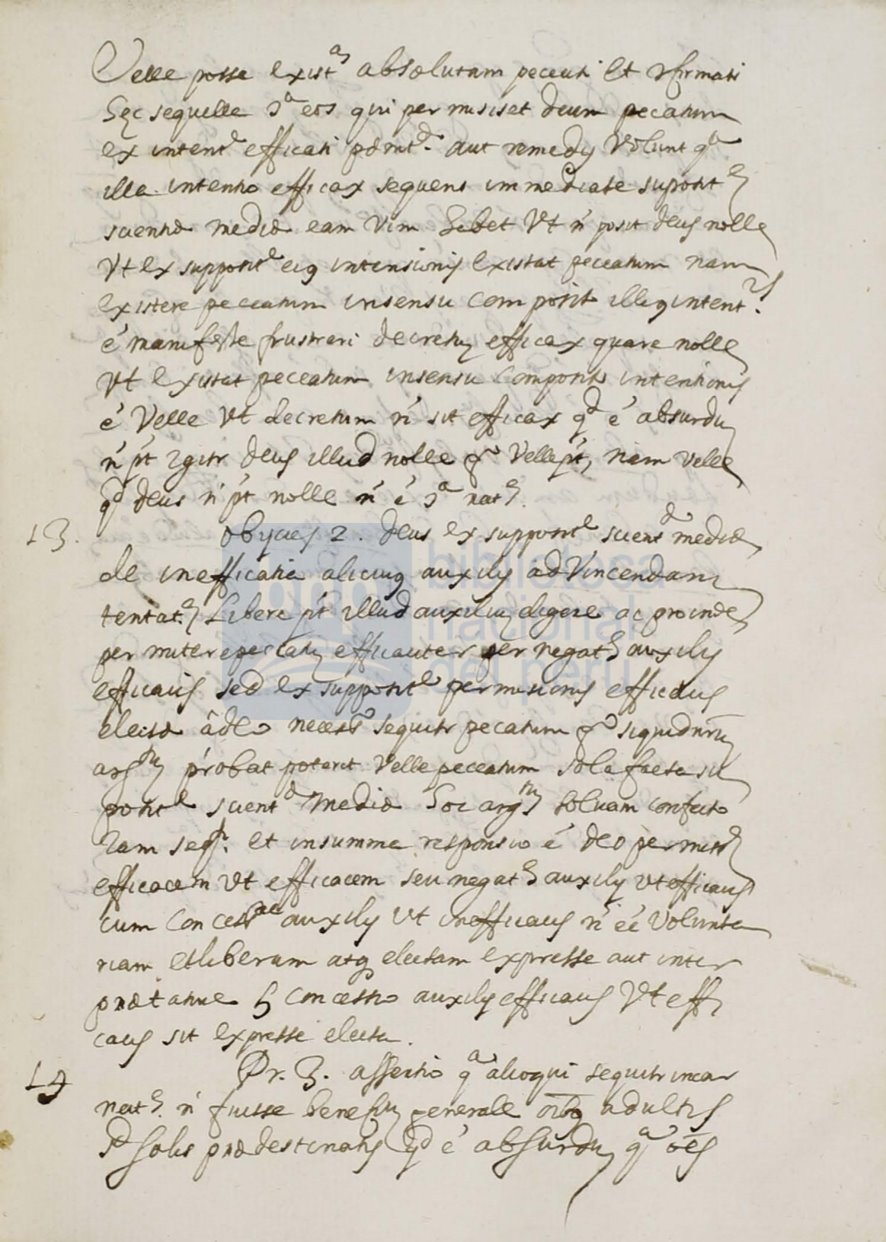 Velle posse exist. absolutam peccati et confirmati
hęc sequelle eos qui permisiset deum pecatum
ex intent. efficati aut remedij Volunt qᵃ
illa intentio efficax sequens immediate suposit
scientiæ mediæ eam Vim habet Vt ñ posit deus nolle
Vt ex supposit. eiq intensionis existat peccatum nam
existere peccatum insensu composit. illiq intent.
é manifeste frustrari decretũ efficax quare nolle
Vt existat peccatum insensu compositi intentionis
é Velle Vt decretum ñ sit efficax qᵈ é absurdũ
ñ pt igitr deus illud nolle Velle pt, nam Velle
qᵈ deus ñ pt nolle ñ é nat.
13. Obijcies 2. deus ex supposit. scient. mediæ
de inefficatia alicuiq auxilij ad Vincendam
tentat. Libere pt illud auxiliũ eligere ac proinde
permitere pecatũ efficaciter per negat. auxilij
efficacis sed ex supposit. permisionis efficacis
electæ á deo necess. sequitr pecatum siquidem
arg. probat poterit Velle peccatum sola facta su
posit. scient. mediæ hoc argᵐ soluam confecto
iam seq. et insumma responsio é deo permiss.
efficacem Vt efficacem seu negat. auxilij Vt efficacis
cum concess. auxilij Vt inefficacis ñ éé Volunta
riam et liberam atq electam expresse aut inter
prætative concessio auxilij efficacis Vt effi
cacis sit expresse electa.
14 Pr. 3. assertio qᵃ alioqui sequitr incar
nat. ñ fuisse beneficiũ generale oibq adultis
solis prædestinatis qᵈ é absurdũ qᵃ oẽs
biblioteca
nacional
del perú